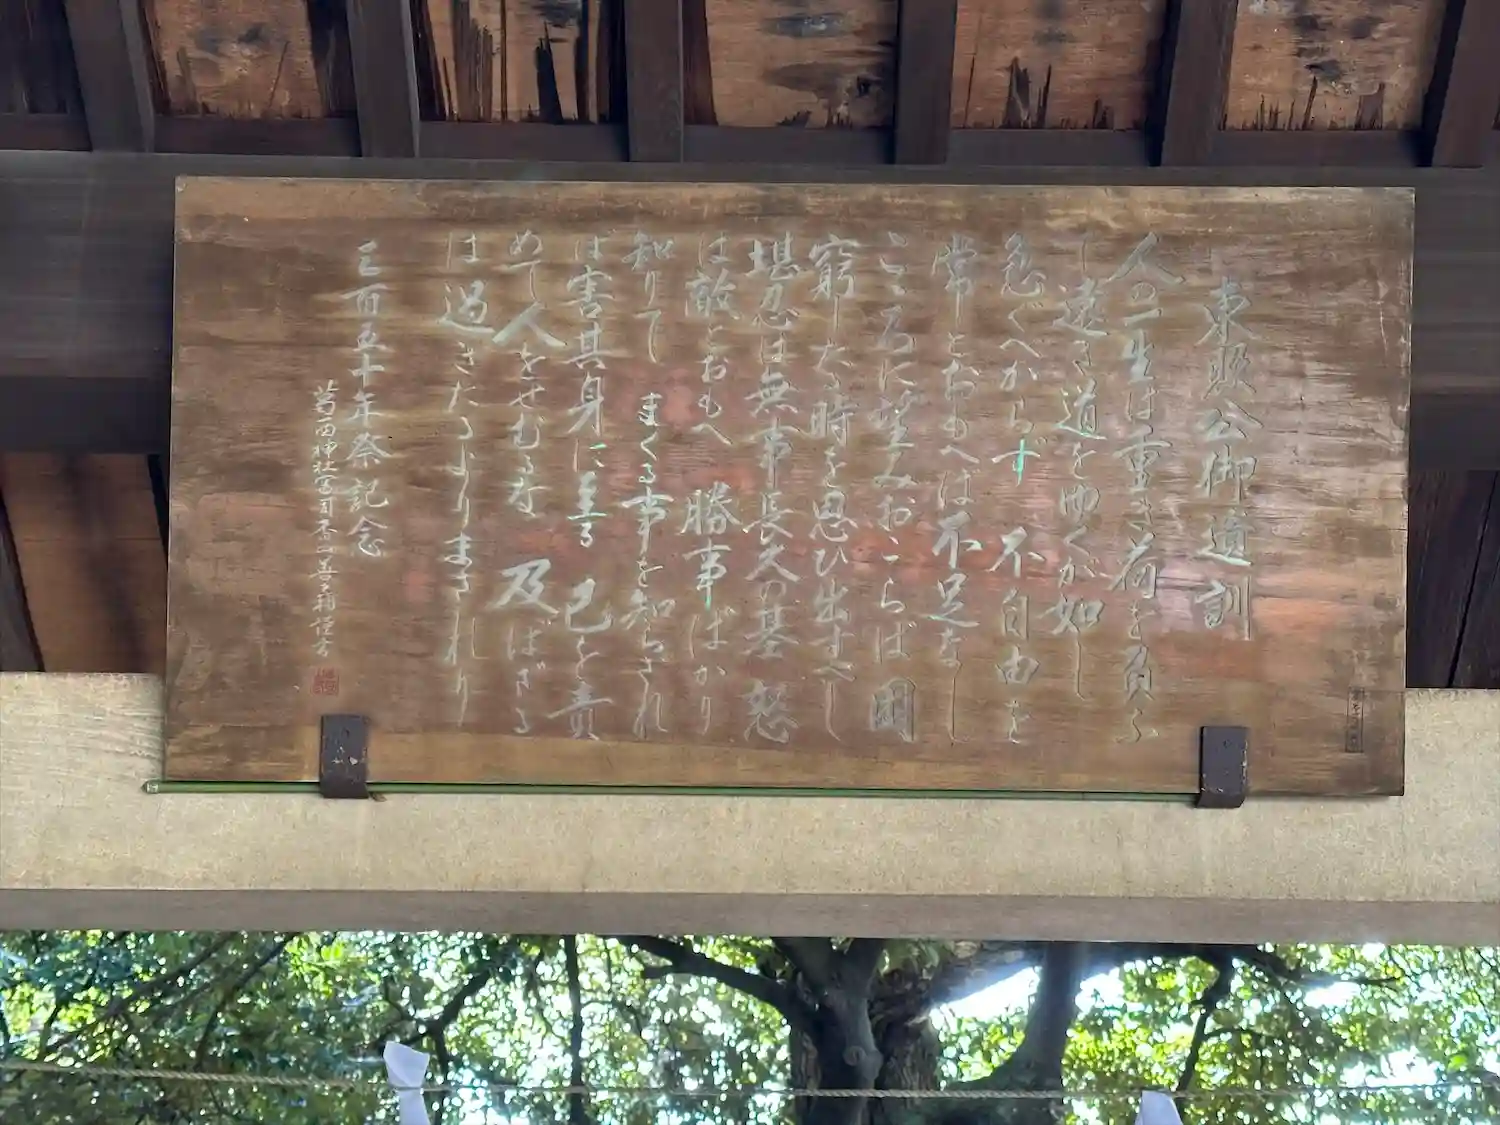 東照公御遺訓
人の一生は重き荷を負ふ
て遠き道をゆくが如し
急ぐべからず 不自由を
常とおもへば不足なし
こゝろに望みおこらば困
窮したる時を思ひ出すべし
堪忍は無事長久の基 怒
は敵とおもへ 勝事ばかり
知りて まくる事を知らざれ
ば害其身に至る 己を責
めて人をせむるな 及ばざる
は過ぎたるよりまされり
三百五十年祭記念
葛西神社宮司